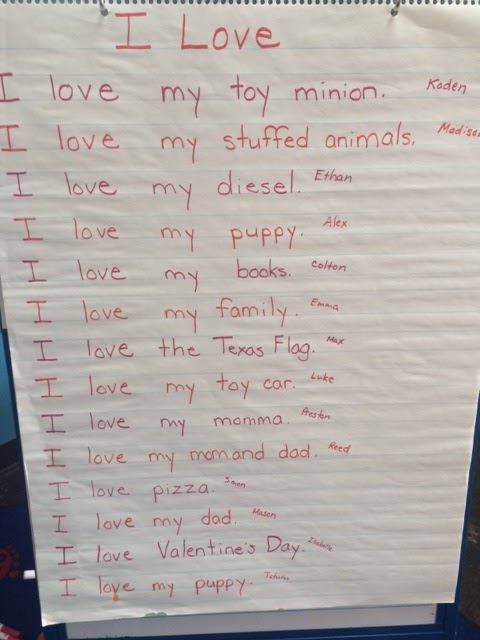 I Love
I love my toy minion. Kaden
I love my stuffed animals. Madison
I love my diesel. Ethan
I love my puppy. Alex
I love my books. Colton
I love my family. Emma
I love the Texas Flag. Max
I love my toy car. Luke
I love my momma. Preston
I love my mom and dad. Reed
I love pizza.
I love my dad. Mason
I love Valentine's Day.
I love my puppy.